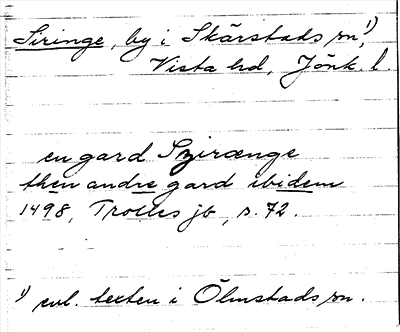 Siringe, by i Skärstads sn¹⁾,
Vista hd, Jönk. l.
en gard Szirænge
then andre gard ibidem
1498, Trolles jb, s. 72.
¹⁾ enl. texten i Ölmstads sn.